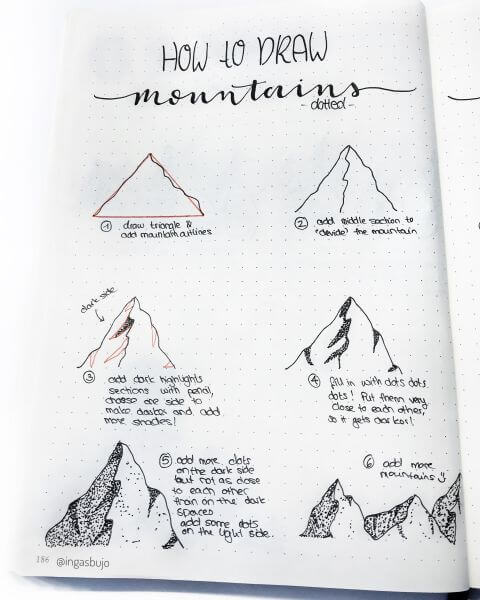 HOW to DRAW
mountains
- dotted -
① draw triangle &
add mountain outlines
② add middle section to
"devide" the mountain
dark side
③ add dark highlights
sections with pencil,
choose one side to
make darker and add
more shades!
④ fill in with dots dots
dots! Put them very
close to each other,
so it gets darker!
⑤ add more dots
on the dark side
but not as close
to each other
than on the dark
spaces
add some dots
on the light side.
⑥ add more
mountains
186 @ingasbujo